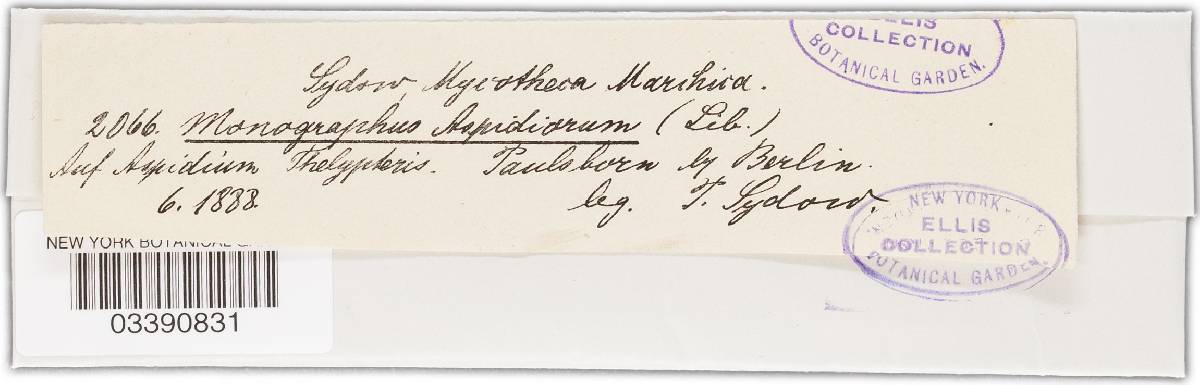 ELLIS
COLLECTION
BOTANICAL GARDEN.
Sydow, Mycotheca Marchica.
2066. Monographus Aspidiorum (Lib.)
Auf Aspidium Thelypteris. Paulsborn by Berlin.
6. 1888. leg. P. Sydow.
NEW YORK
ELLIS
COLLECTION
BOTANICAL GARDEN.
NEW YORK BOTANICAL
03390831